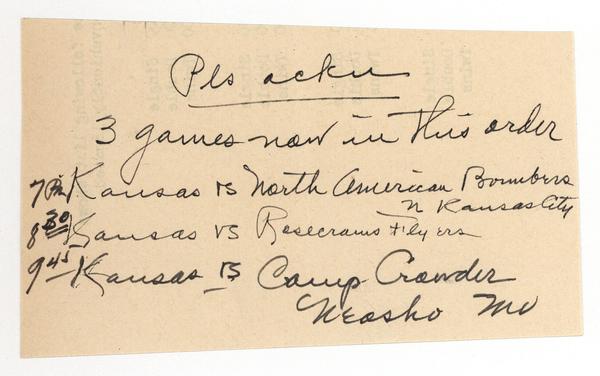 Pls ackn
3 games now in this order
7 PM Kansas vs North American Bombers
n Kansas City
8 30 Kansas vs Rosecrans Flyers
9 45 Kansas vs Camp Crowder
Neosho Mo